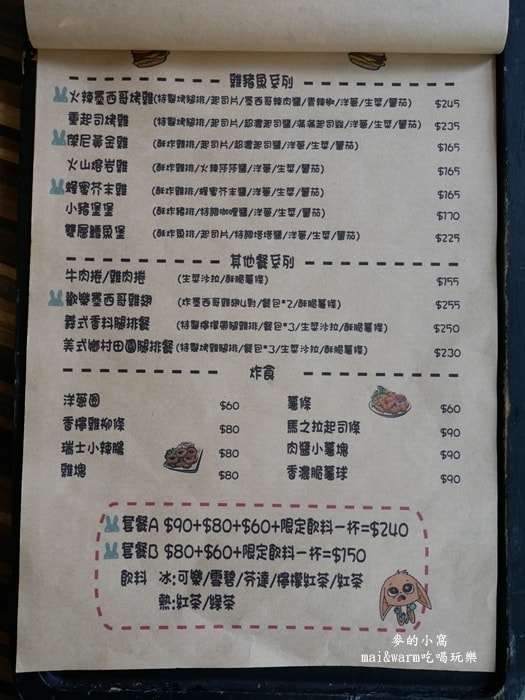 雞豬魚系列
火辣墨西哥烤雞(特製烤腿排/起司片/墨西哥辣肉醬/青辣椒/洋蔥/生菜/番茄) $245
重起司烤雞 (特製烤腿排/起司片/超濃起司醬/滿滿起司絲/洋蔥/生菜/番茄) $235
傑尼黃金雞 (酥炸雞排/起司片/超濃起司醬/洋蔥/生菜/番茄) $165
火山熔岩雞 (酥炸雞排/火辣莎莎醬/洋蔥/生菜/番茄) $165
蜂蜜芥末雞 (酥炸雞排/蜂蜜芥末醬/洋蔥/生菜/番茄) $165
小豬堡堡 (酥炸豬排/特調咖哩醬/洋蔥/生菜/番茄) $170
雙層鱈魚堡 (酥炸魚排/起司片/特調塔塔醬/洋蔥/生菜/番茄) $225
其他餐系列
牛肉捲/雞肉捲 (生菜沙拉/酥脆薯條) $155
歡樂墨西哥雞翅 (炸墨西哥雞翅4對/餐包*2/酥脆薯條) $255
義式香料腿排餐 (特製檸檬帶腿雞排/餐包*3/生菜沙拉/酥脆薯條) $250
美式鄉村田園腿排餐 (特製烤雞腿排/餐包*3/生菜沙拉/酥脆薯條) $230
炸食
洋蔥圈 $60 薯條 $60
香檸雞柳條 $80 馬之拉起司條 $90
瑞士小辣腸 $80 肉醬小薯塊 $90
雞塊 $80 香濃脆薯球 $90
套餐A $90+$80+$60+限定飲料一杯=$240
套餐B $80+$60+限定飲料一杯=$150
飲料 冰:可樂/雪碧/芬達/檸檬紅茶/紅茶
熱:紅茶/綠茶
麥的小窩
mai&warm吃喝玩樂